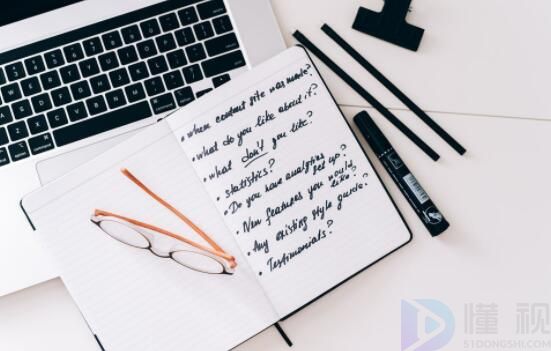 • When content site was made?
• What do you like about it?
• What don't you like?
• statistics?
• Do you have analytics set up?
• New features you would
• Any existing style guide?
• Testimonials?
懂视
51DONGSHI.COM